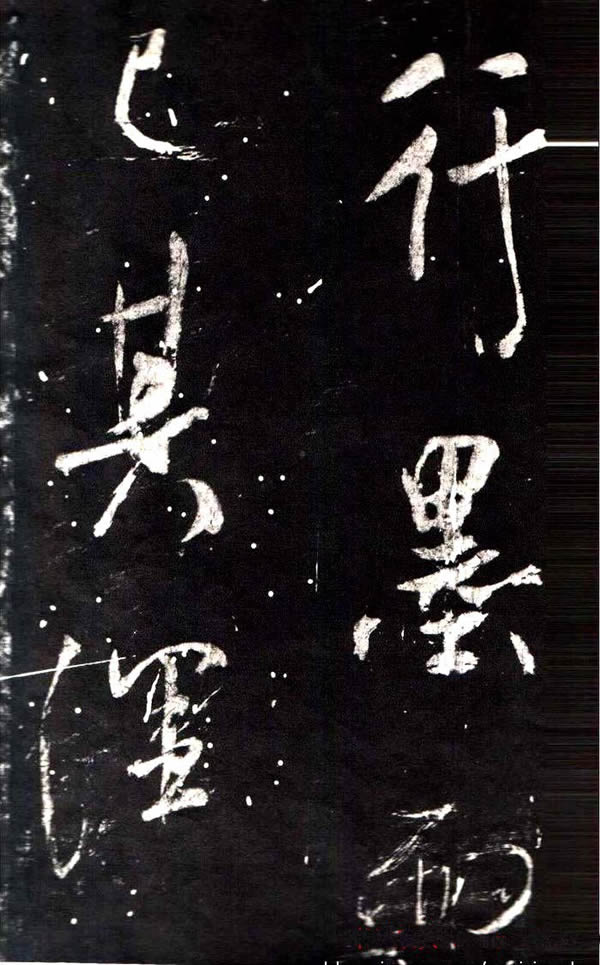 行墨而
已其渾